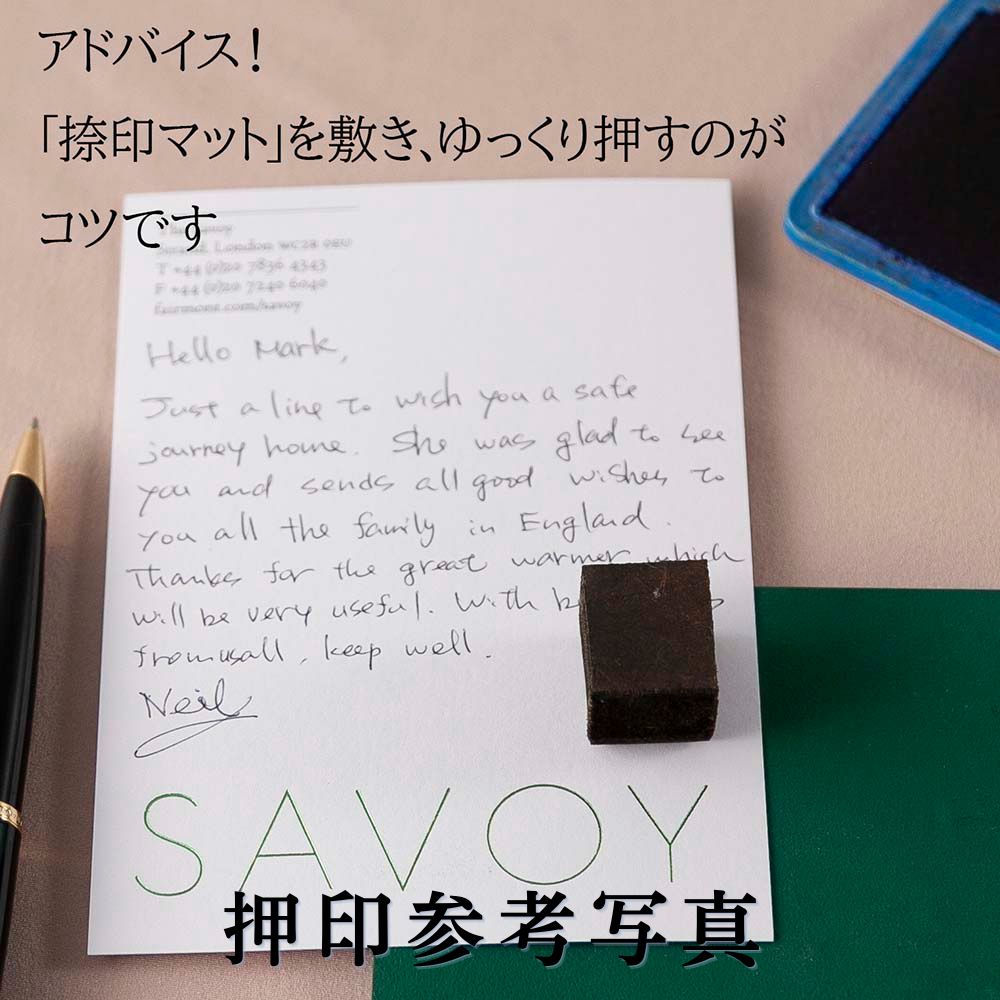 アドバイス！
「捺印マット」を敷き、ゆっくり押すのが
コツです
London WC2R 0EU
T +44 (0)20 7836 4343
F +44 (0)20 7240 6040
fairmont.com/savoy
Hello Mark,
Just a line to wish you a safe
journey home. She was glad to see
you and sends all good wishes to
you all the family in England.
Thanks for the great warmer which
will be very useful. With
from us all, keep well.
Neil
SAVOY
押印参考写真